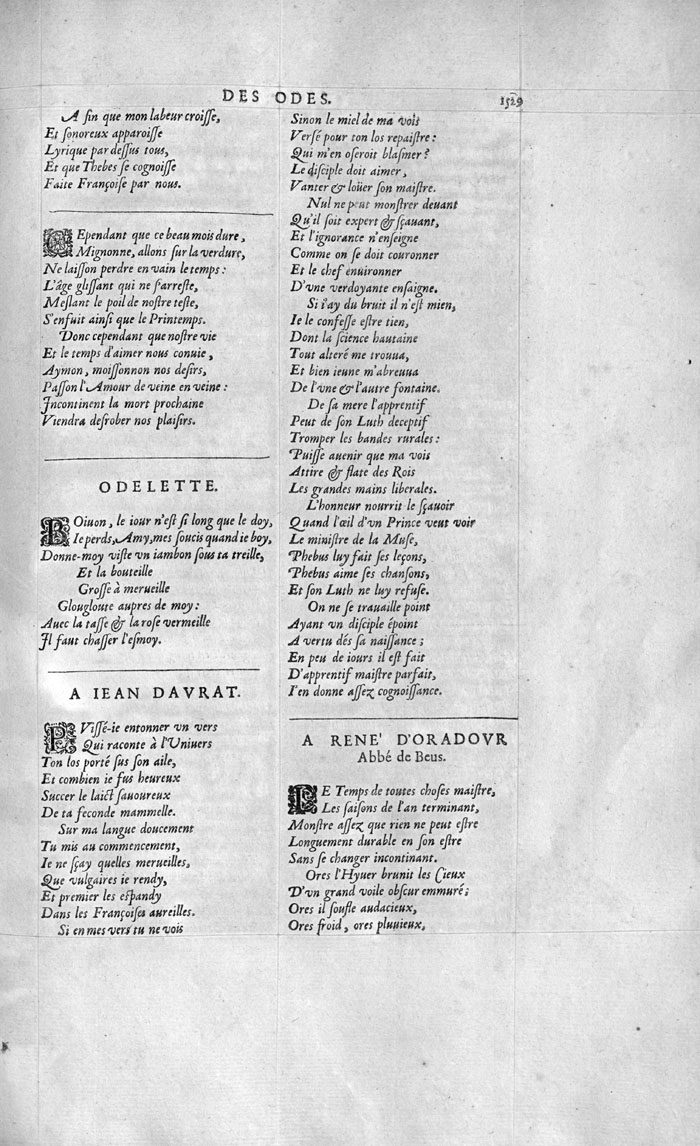 DES ODES.
1529
A fin que mon labeur croiſſe,
Et ſonoreux apparoiſſe
Lyrique par deſſus tous,
Et que Thebes ſe cognoiſſe
Faite Françoiſe par nous.
CEpendant que ce beau mois dure,
Mignonne, allons ſur la verdure,
Ne laiſſon perdre en vain le temps:
L'âge gliſſant qui ne ſ'arreſte,
Meſlant le poil de noſtre teſte,
S'enfuit ainſi que le Printemps.
Donc cependant que noſtre vie
Et le temps d'aimer nous conuie,
Aymon, moiſſonnon nos deſirs,
Paſſon l'Amour de veine en veine:
Incontinent la mort prochaine
Viendra deſrober nos plaiſirs.
ODELETTE.
BOiuon, le iour n'eſt ſi long que le doy,
Ie perds, Amy, mes ſoucis quand ie boy,
Donne-moy viſte vn iambon ſous ta treille,
Et la bouteille
Groſſe à merueille
Glougloute aupres de moy:
Auec la taſſe & la roſe vermeille
Il faut chaſſer l'eſmoy.
A IEAN DAVRAT.
PViſſé-ie entonner vn vers
Qui raconte à l'Vniuers
Ton los porté ſus ſon aile,
Et combien ie fus heureux
Succer le laict ſauoureux
De ta feconde mammelle.
Sur ma langue doucement
Tu mis au commencement,
Ie ne ſçay quelles merueilles,
Que vulgaires ie rendy,
Et premier les eſpandy
Dans les Françoiſes aureilles.
Si en mes vers tu ne vois
Sinon le miel de ma vois
Verſé pour ton los repaiſtre:
Qui m'en oſeroit blaſmer?
Le diſciple doit aimer,
Vanter & loüer ſon maiſtre.
Nul ne peut monſtrer deuant
Qu'il ſoit expert & ſçauant,
Et l'ignorance n'enſeigne
Comme on ſe doit couronner
Et le chef enuironner
D'vne verdoyante enſaigne.
Si i'ay du bruit il n'eſt mien,
Ie le confeſſe eſtre tien,
Dont la ſcience hautaine
Tout alteré me trouua,
Et bien ieune m'abreuua
De l'vne & l'autre fontaine.
De ſa mere l'apprentif
Peut de ſon Luth deceptif
Tromper les bandes rurales:
Puiſſe auenir que ma vois
Attire & flate des Rois
Les grandes mains liberales.
L'honneur nourrit le ſçauoir
Quand l'œil d'vn Prince veut voir
Le miniſtre de la Muſe,
Phebus luy fait ſes leçons,
Phebus aime ſes chanſons,
Et ſon Luth ne luy refuſe.
On ne ſe trauaille point
Ayant vn diſciple époint
A vertu dés ſa naiſſance;
En peu de iours il eſt fait
D'apprentif maiſtre parfait,
I'en donne aſſez cognoiſſance.
A RENE' D'ORADOVR
Abbé de Beus.
LE Temps de toutes choſes maiſtre,
Les ſaiſons de l'an terminant,
Monſtre aſſez que rien ne peut eſtre
Longuement durable en ſon eſtre
Sans ſe changer incontinant.
Ores l'Hyuer brunit les Cieux
D'vn grand voile obſcur emmuré;
Ores il ſoufle audacieux,
Ores froid, ores pluuieux,